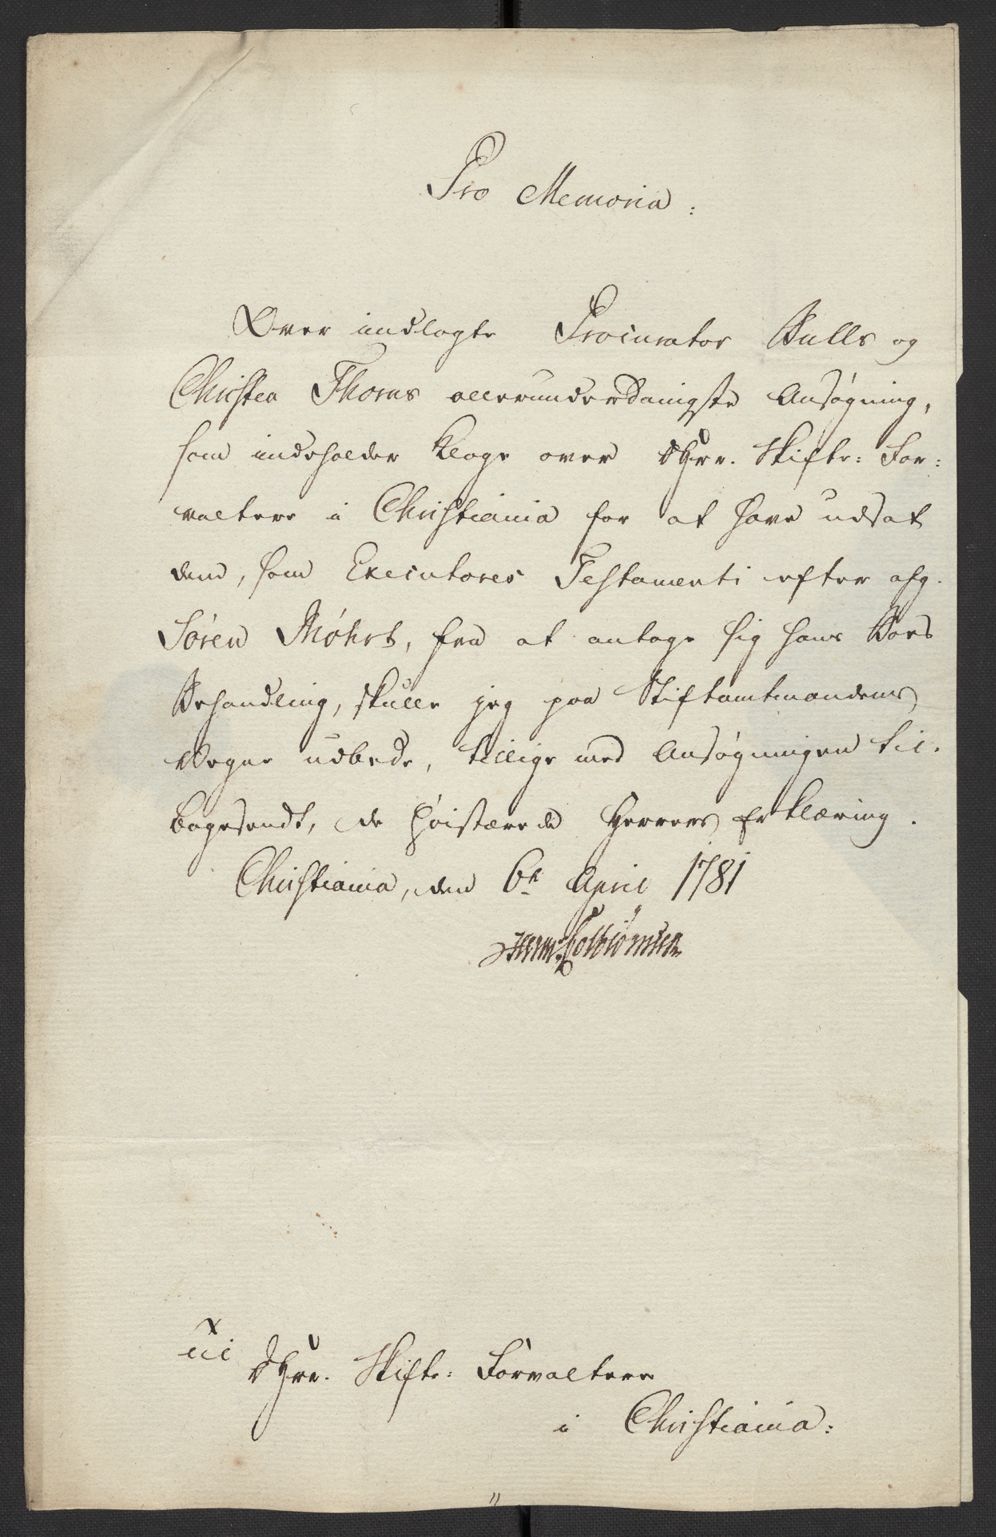 Pro Memoria:
Over indlagte Procurator Bulls og
Christen Thorns allerunderdanigste Ansøgning,
som indeholder Klage over DHrr. Skifte: For:
valtere i Christiania for at have udsat
dem, som Executores Testamenti efter afg.
Søren Møhrs, fra at antage sig hans Boes
Behandling, skulle jeg paa Stiftamtmandens
Vegne udbede, tillige med Ansøgningen til:
bagesendt, de Høistærede Herrers Erklæring.
Christiania, den 6te April 1781
Herm: Colbiørnsen
Til DHrr. Skifte: Forvaltere
i Christiania: